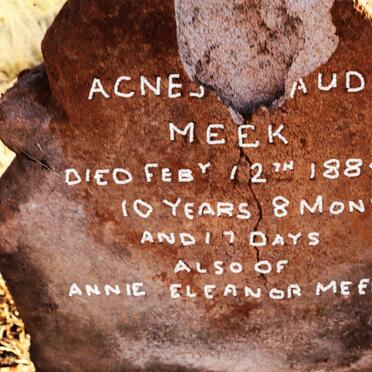 ACNES AUD
MEEK
DIED FEBY 12TH 188
10 YEARS 8 MON
AND 17 DAYS
ALSO OF
ANNIE ELEANOR MEE